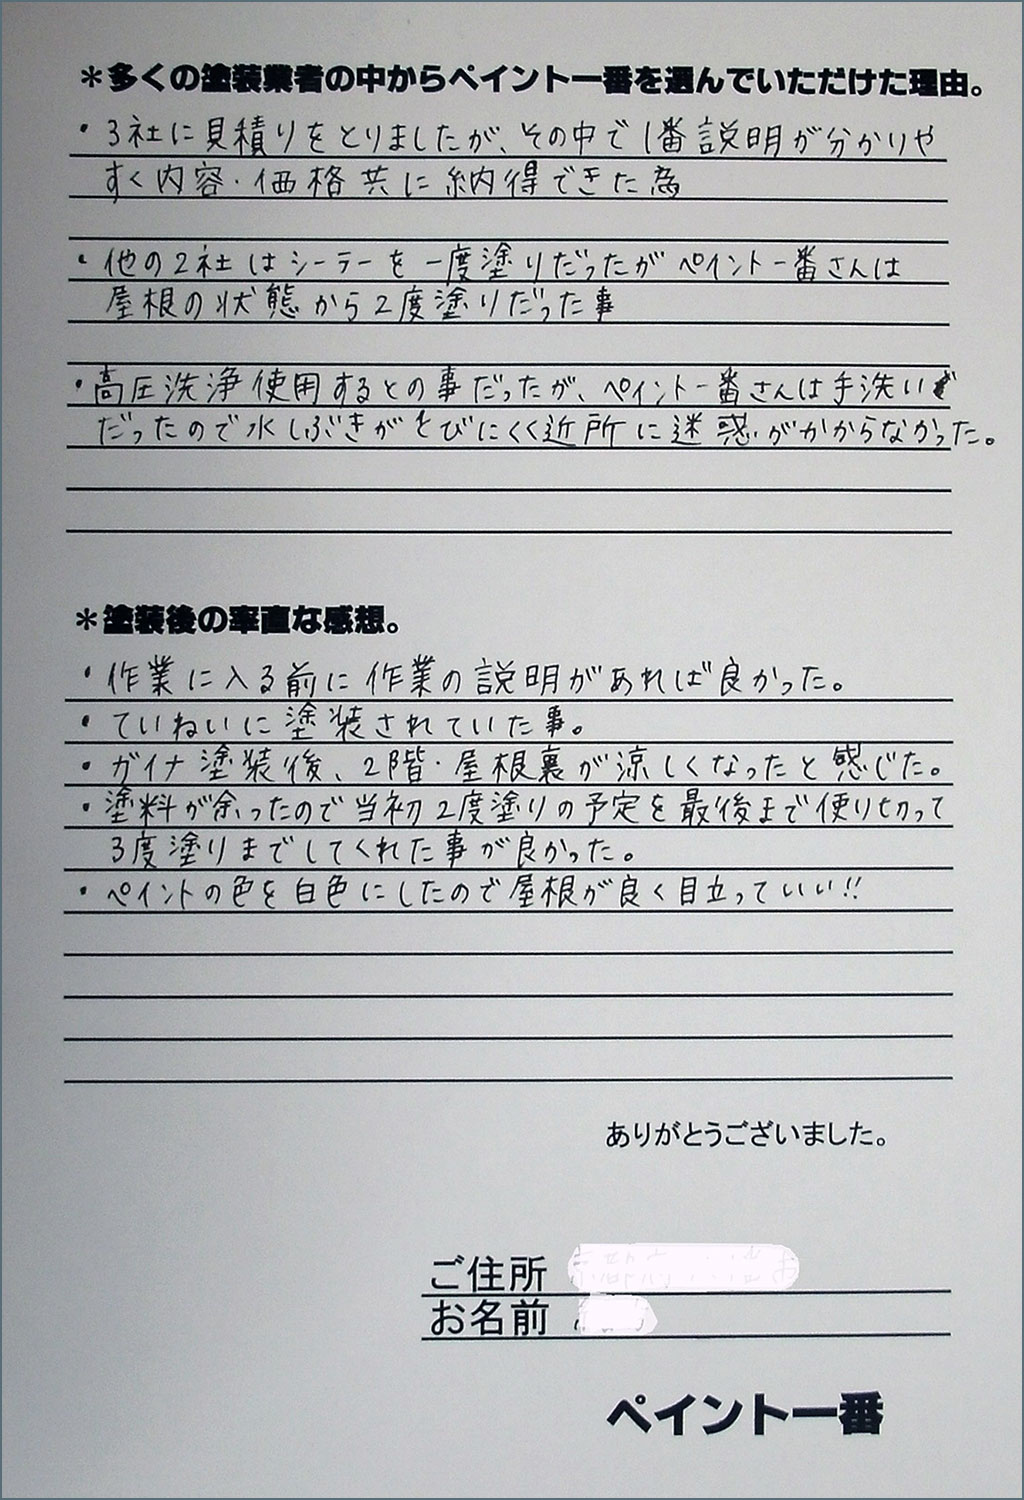 ＊多くの塗装業者の中からペイント一番を選んでいただけた理由。
・3社に見積りをとりましたが、その中で1番説明が分かりや
すく内容・価格共に納得できた為
・他の2社はシーラーを一度塗りだったがペイント一番さんは
屋根の状態から2度塗りだった事
・高圧洗浄使用するとの事だったが、ペイント一番さんは手洗い
だったので水しぶきがとびにくく近所に迷惑がかからなかった。
＊塗装後の率直な感想。
・作業に入る前に作業の説明があれば良かった。
・ていねいに塗装されていた事。
・ガイナ塗装後、2階・屋根裏が涼しくなったと感じた。
・塗料が余ったので当初2度塗りの予定を最後まで使り切って
3度塗りまでしてくれた事が良かった。
・ペイントの色を白色にしたので屋根が良く目立っていい!!
ありがとうございました。
ご住所
お名前
ペイント一番